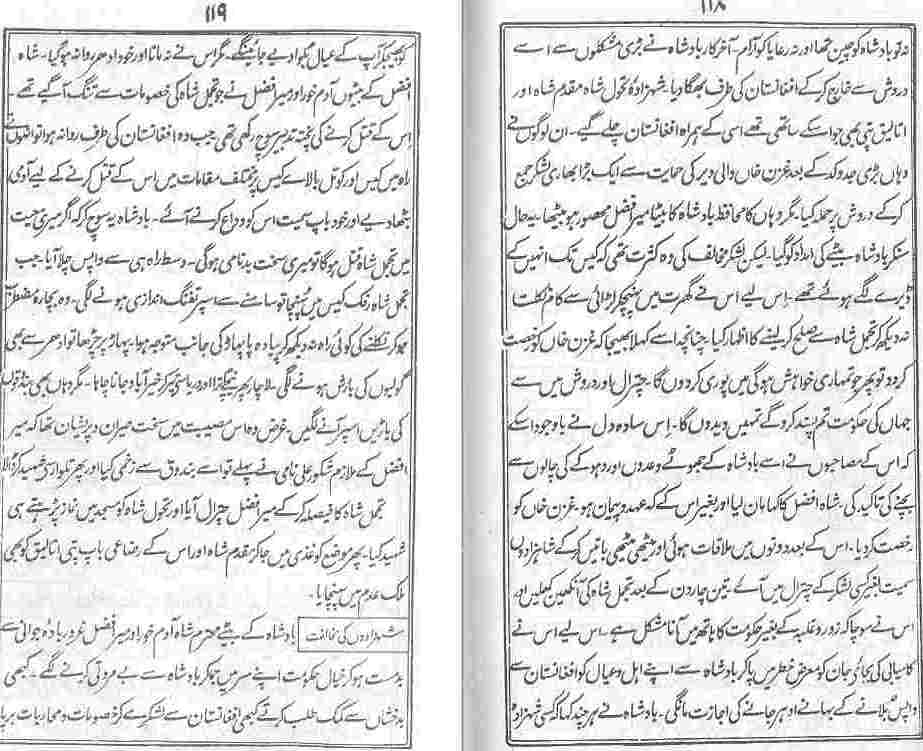 ۱۱۸
نہ تو بادشاہ کو چین تھا اور نہ رعایا کو آرام۔ آخر کار بادشاہ نے بڑی مشکلوں سے اسے
دروش سے خارج کرکے افغانستان کی طرف بھگا دیا۔ شہزادہ تحول شاہ مقدم شاہ اور
اتالیق پتی بھی جو اسکے ساتھی تھے اسی کے ہمراہ افغانستان چلے گیے۔ ان لوگوں نے
وہاں بڑی جدوکد کے بعد غزن خاں والی دیر کی حمایت سے ایک بڑا بھاری لشکر جمع
کرکے دروش پر حملہ کیا۔ مگر وہاں کا محافظ بادشاہ کا بیٹا میر افضل محصور ہو بیٹھا۔ یہ حال
سنکر بادشاہ بیٹے کی امداد کو گیا۔ لیکن لشکر مخالف کی وہ کثرت تھی کہ کیس تک انہیں کے
ڈیرے لگے ہوئے تھے۔ اس لیے اس نے گھیرت میں پہنچکر لڑائی سے کام نکلتا
نہ دیکھ کر تجمل شاہ سے صلح کر لینے کا اظہار کیا۔ چنانچہ اسے کہلا بھیجا کہ غزن خاں کو رخصت
کردو تو پھر جو تمہاری خواہش ہوگی میں پوری کردوں گا۔ چترال اور دروش میں سے
جہاں کی حکومت تم پسند کروگے تمہیں دیدوں گا۔ اس سادہ دل نے باوجود اسکے
کہ اس کے مصاحبوں نے اسے بادشاہ کے جھوٹے وعدوں اور دہوکے کی چالوں سے
بچنے کی تاکید کی۔ شاہ افضل کا کہا مان لیا اور بغیر اس کے کہ عہد و پیمان ہو۔ غزن خاں کو
رخصت کردیا۔ اس کے بعد دونوں میں ملاقات ہوئی اور میٹھی میٹھی باتیں کرکے شاہزادوں
سمیت بغیر کسی لشکر کے چترال میں آئے۔ تین چار دن کے بعد تجمل شاہ کی آنکھیں کھلیں اور
اس نے سوچا کہ زور و غلبہ کے بغیر حکومت کا ہاتھ میں آنا مشکل ہے۔ اس لیے اس نے
کامیابی کی بجائے جان کو معرض خطر میں پاکر بادشاہ سے اپنے اہل و عیال کو افغانستان سے
واپس بلانے کے بہانے ادھر جانے کی اجازت مانگی۔ بادشاہ نے ہر چند کہا کہ کسی شہزادہ
۱۱۹
کو بھیجکر آپ کے عیال منگوا دیے جائینگے۔ مگر اس نے نہ مانا اور خود ادھر روانہ ہوگیا۔ شاہ
افضل کے بیٹوں آدم خور اور میر افضل نے جو تجمل شاہ کی خصومات سے تنگ آگیے تھے۔
اس کے قتل کرنے کی پختہ تدبیر سوچ رکھی تھی جب وہ افغانستان کی طرف روانہ ہوا تو انہوں نے
راہ میں کیس اور کوتل بالائے کیس پر مختلف مقامات میں اس کے قتل کرنے کے لیے آدمی
بٹھا دیے اور خود باپ سمیت اس کو وداع کرنے آئے۔ بادشاہ یہ سوچ کر کہ اگر میری معیت
میں تجمل شاہ قتل ہوگا تو میری سخت بدنامی ہوگی۔ وسط راہ ہی سے واپس چلا آیا۔ جب
تجمل شاہ تنگ کیس میں پہنچا تو سامنے سے اسپر تفنگ اندازی ہونے لگی۔ وہ بیچارہ مضطر
ہوکر نکلنے کی کوئی راہ نہ دیکھ کر پیادہ پا پہاڑ کی جانب متوجہ ہوا۔ پہاڑ پر چڑھا تو ادھر سے بھی
گولیوں کی بارش ہونے لگی۔ لاچار پھر نیچے اترا اور دریا تیر کر خیر آباد جانا چاہا۔ مگر وہاں بھی بندوقوں
کی باڑیں اسپر آنے لگیں۔ غرض وہ اس مصیبت میں سخت حیران و پریشان تھا کہ میر
افضل کے ملازم شکور علی نامی نے پہلے تو اسے بندوق سے زخمی کیا اور پھر تلوار سے شہید کر ڈالا
تجمل شاہ کا فیصلہ کرکے میر افضل چترال آیا اور تحول شاہ کو مسجد میں نماز پڑھتے ہی
شہید کیا۔ پھر موضع کوغذی میں جاکر مقدم شاہ اور اس کے رضاعی باپ پتی اتالیق کو بھی
ملک عدم میں پہنچایا۔
شہزادوں کی مخالفت بادشاہ کے بیٹے محترم شاہ آدم خور اور میر افضل غرور بادۂ جوانی سے
بدمست ہوکر خیال حکومت اپنے سر میں جماکر بادشاہ سے بے مروتی کرنے لگے۔ کبھی
بدخشاں سے کمک طلب کرتے کبھی افغانستان سے لشکر لے کر خصومات و محاربات برپا